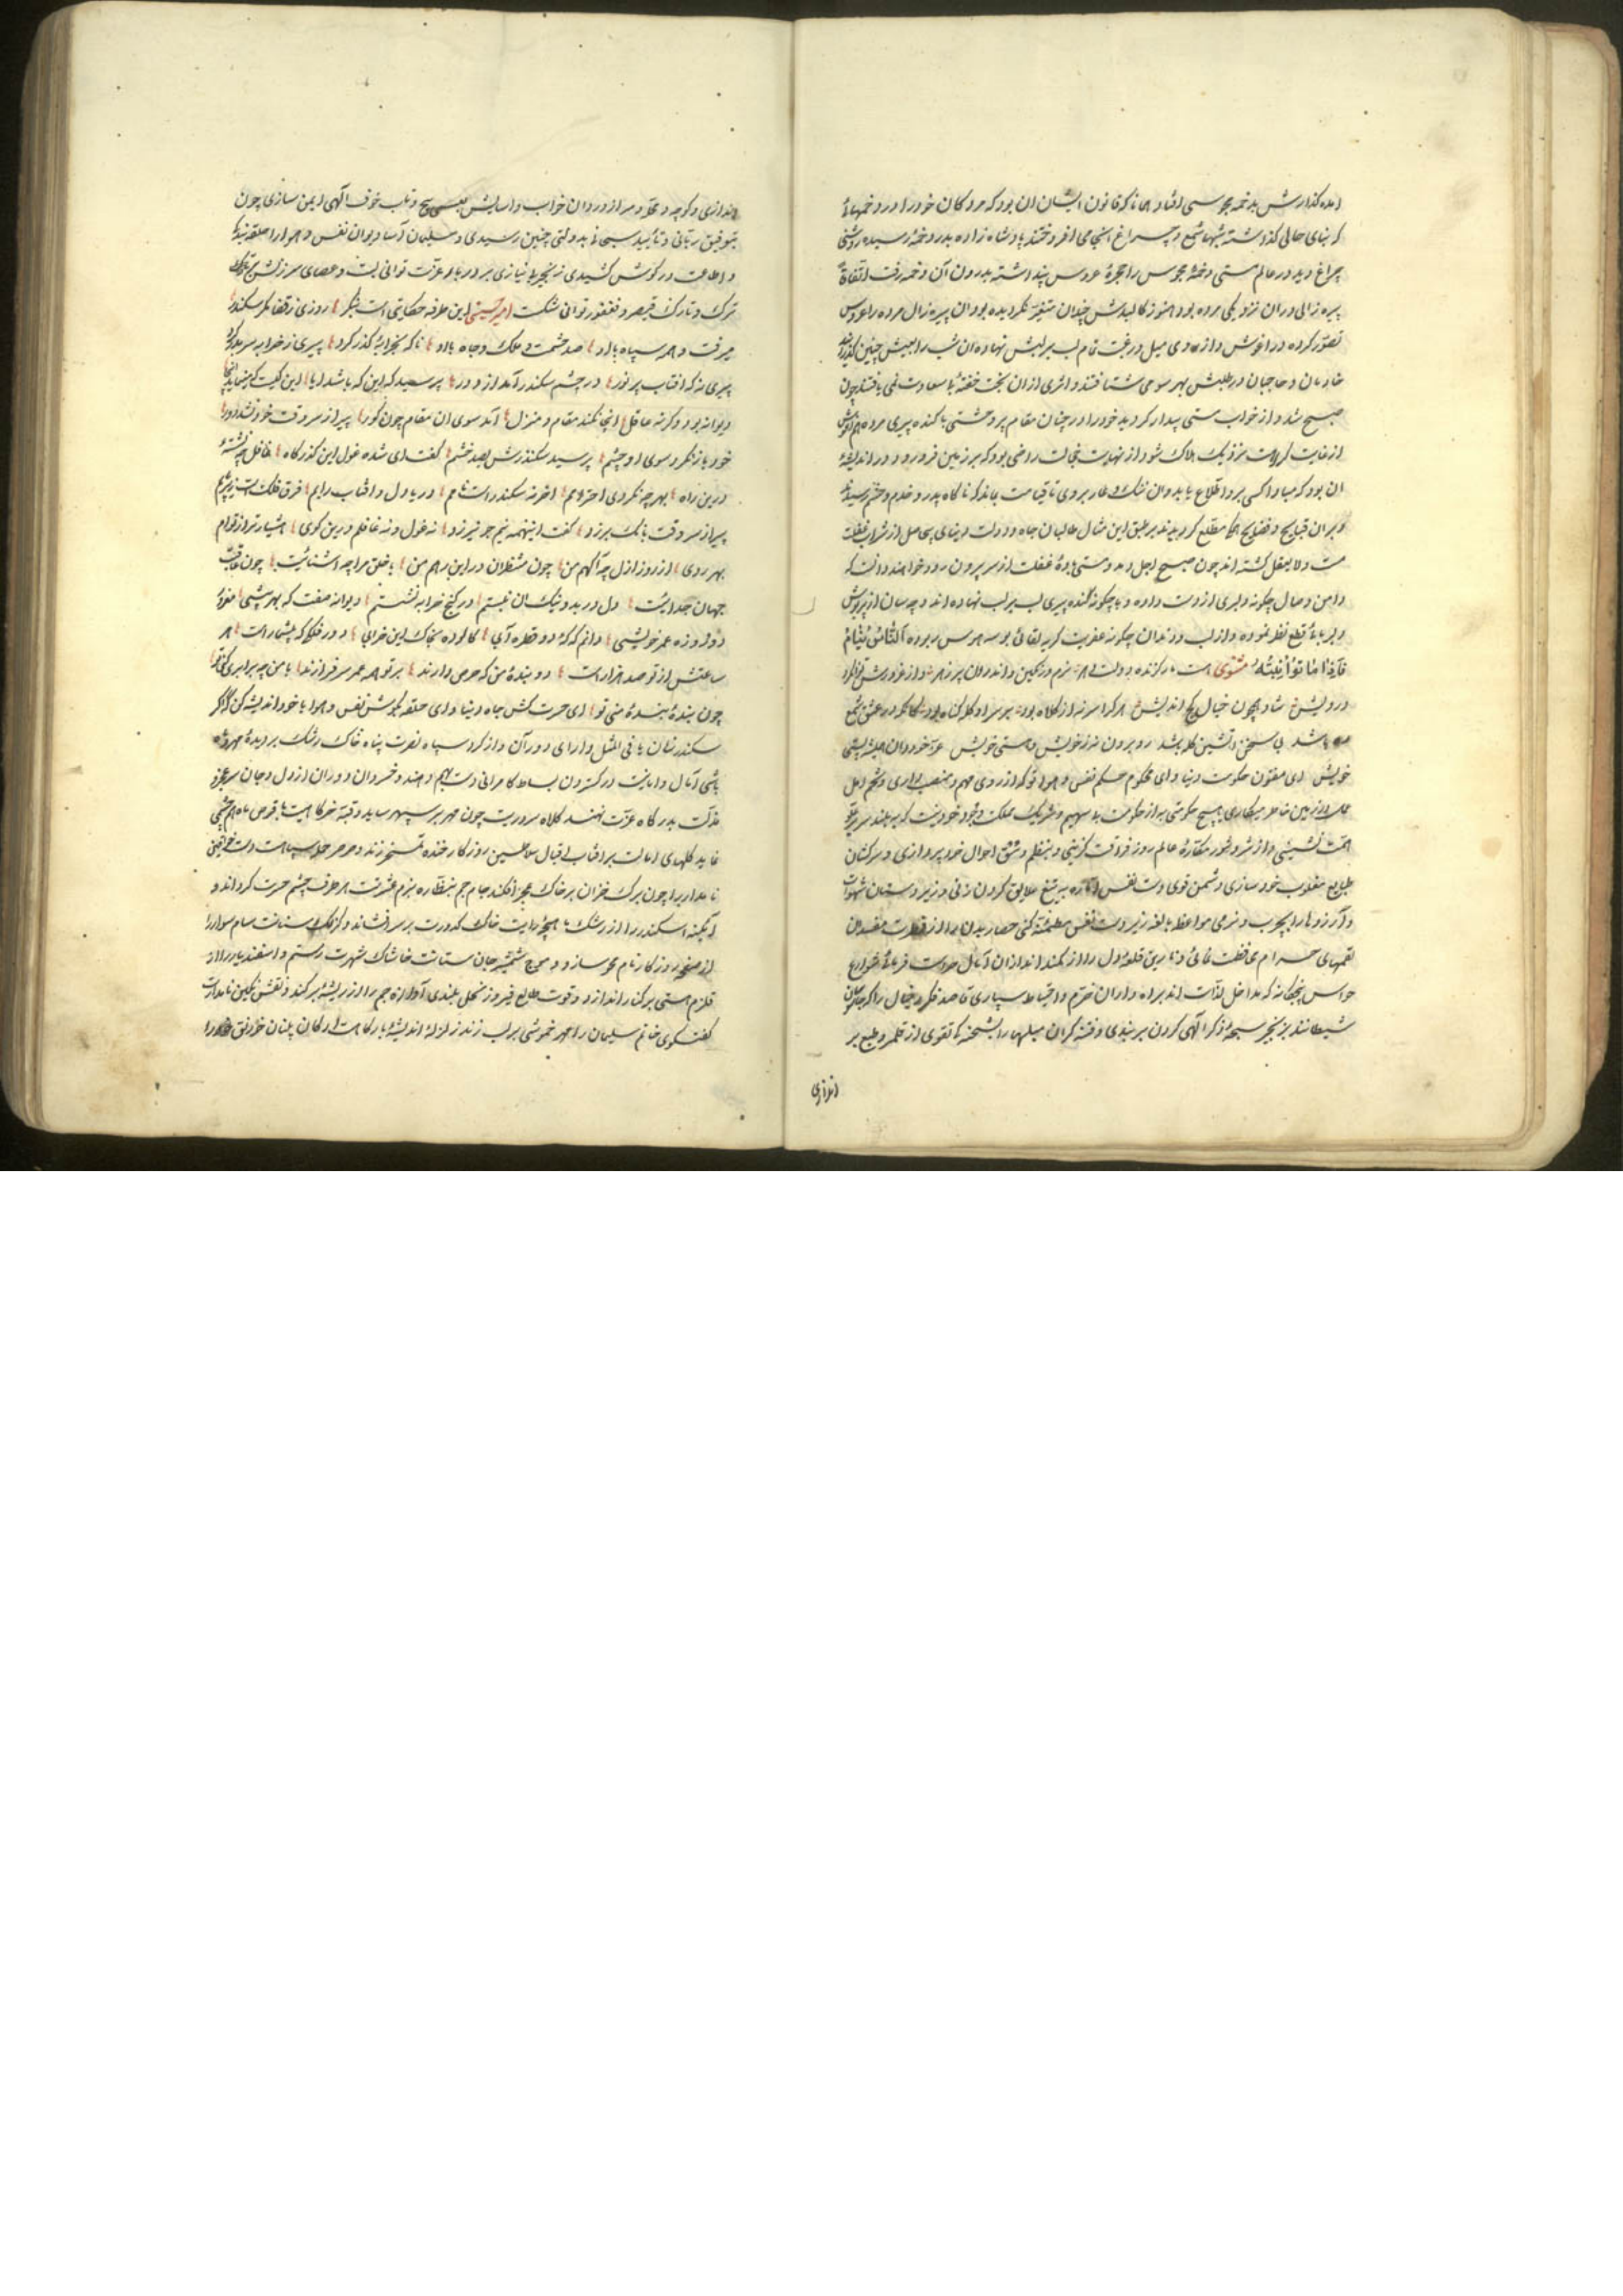 امده گذارش بدخمهٔ مجوسی افتاد همانا که قانون ایشان ان بود که مردکان خود را در دخمهاء
که بنای خالی گذاشته شبها شمع و چراغ انجا می افروختند پادشاه زاده بدر دخمه رسیده روشنی
چراغ دید در عالم مستی دخمهٔ مجوس را حجرهٔ عروس پنداشته بدرون آن دخمه رفت اتفاقا
پیره زالی دران نزدیکی مرده بود و هنوز کالبدش چندان متغیر نکردیده بود ان پیره زال مرده را عروس
تصور کرده در اغوش و از روی میل و رغبت تمام لب بر لبش نهاده ان شب را بعیش چنین گذرانید
خادمان و حاجبان در طلبش بهر سو می شتافتند و اثری ازان بخت خفتهٔ با سعادت نمی یافتند چون
صبح شد و از خواب مستی بیدار کردید خود را در چنان مقام پر وحشتی با کنده پیری مرده هم اغوش
از غایت کراهت نزدیک هلاک شود از نهایت خجالت راضی بود که بر زمین فرو رود و در اندیشهٔ
ان بود که مبادا کسی بر و اطلاع یابد وان ننک و عار بروی تا قیامت بماند که ناکاه پدر و خدم و حشم رسیدند
و بر ان قبایح و فضایح همکی مطلع کردیدند بر طبق این مثال طالبان جاه و دولت دنیای بی حاصل از شراب غفلت
مست و لا یعقل کشته اند چون صبح اجل دمد و مستی بادهٔ غفلت از سر بیرون رود خواهند دانست که
دامن وصال چکونه دلبری از دست داده و با چکونه کنده پیری لب بر لب نهاده اند و چه سان از پرورش
دلربائی قطع نظر نموده و از لب و دندان چکونه عفریت کریه لقائی بوسه هوس ربوده النّاسُ نِیامٌ
فَاِذا ماتُوا اِنتَبَهُوا مثنوی هست مار کزنده دولت بزم رنکین و اندران پر زهر
درویش شاد همچون خیال کج اندیش هر کرا سر نه از کلاه بود بر سر او کله کناه بود کانکه در عشق شمع
باشد بی سخن دشمن کله باشد رو برون نه ز خویش و مستی خویش
خویش ای مفتون حکومت دنیا و ای محکوم حکم نفس و هوا تو که از روی مهم و منصب داری و حکم و عمل
همت نشینی و از شر و شور مکارهٔ عالم روز فراقت کزینی و بنظم و نسق احوال خود پردازی و سرکشان
طبایع مغلوب خود سازی و دشمن قوی دست نفس اماره به تیغ علایق کردن زنی و زیر دستان شهوات
و آرزوها را بچرب و نرمی مواعظ بالغه زیر دست نفس مطمئنه کنی حصار بدن را از
لقمهای حرام محافظت نمائی و تاریق قلعهٔ دل را از کمند انداز ان آمال حراست فرمائی شوارع
حواس پنجکانه که مداخل لذات اند براه داران حزم و احتیاط سپاری قاصد فکر و خیال را که جاسوسان
شیطانند بزنجیر سبحهٔ ذکر الهی کردن بر بندی و فتنه کران میلها را بشحنهٔ تقوی از قلمرو طبع بر
اندازی
اندازی و کوچه و محله و سر از دزدان خواب و اسایش بعسس پیچ و تاب خوف الهی ایمن سازی چون
بتوفیق ربانی و تائید سبحانی بدولتی چنین رسیدی و سلیمان آسا دیوان نفس و هوا را حلقه بندکی
و اطاعت در کوش کشیدی زنجیر بی نیازی بر در بارعزت توانی بست و عصای سرزنش
ترک و تارک قیصر و فغفور توان شکست امیر حسینی این طرفه حکایتی است بنکر روزی ز قضا مکر سکندر
میرفت و همه سپاه با او صد حشمت و ملک و جاه با او ناکه بخرابهٔ گذر کرد پیری ز خرابه سر بدر کرد
پیری نه که افتاب پر نور در چشم سکندر آمد از دور پرسید که این که باشد ایا این کیست که مینماید انجا
دیوانه بود و کرنه عاقل انجا نکند مقام و منزل آمد سوی ان مقام چون کور پیر از سر وقت خود نشد دور
خود باز نکرد سوی او چشم پرسید سکندرش بصد خشم گفت ای شده غول این گذرکاه غافل چه نشستهٔ
درین راه بهر چه نکردی احترامم اخر نه سکندر است نامم دریا دل و افتاب رایم فرق فلک است زیر پایم
پیر از سر وقت بانک بر زد گفت اینهمه نیم جو نیرزد نه غول و نه غافلم درین کوی هشیار تر از توام
بهر روی از روز ازل چه آکهم من چون منتظران در این رهم من با خلق مرا چه اشنائیست چون عاقبت
جهان جدائیست دل در بد و نیکشان نبستم در کنج خرابه نشستم دیوانه صفت که بهر مشتی مغرور
دو روزه عمر خویشی دانم که که دو قطره آبی کالوده بخاک این خرابی دور فلکی که بیشمار است هر
ساعتش از تو صد هزار است دو بندهٔ من که حرص و ازند بر تو همه عمر سرفرازند با من چه برابری کنی تو
چون بندهٔ بندهٔ منی تو ای حسرت کش جاه دنیا و ای حلقه بکوش نفس و هوا با خود اندیشه کن که اکر
سکندر نشان یا فی المثل دارای دوران و از کرد سپاه نصرت پناه خاک رشک بر دیدهٔ مهر و ماه
پاشی آمال و امانیت در کستردن بساط کامرانی دست بهم دهند و خسروان دوران از دل و جان سر عجز
مذلت بدرکاه عزتت نهند کلاه سروریت چون مهر بر سپهر ساید و قبهٔ خرکاهیت با قرص ماه هم چشمی
نماید کلهای امالت بر افتاب اقبال سلاطین روزکار خنده تمسخر زند و صرصر
نامدار را چون برک خزان بر خاک عجز افکند جام جم بنظاره بزم عشرتت هر طرف چشم حسرت کرداند و
آئینه اسکندر را از رشک ماهچهٔ رایت خاک کدورت بر سر افشاند و کرکک سنانت سام سوار را
از صفحه روزکار نام محو سازد و موج شمشیر جان ستانت خاشاک شهرت رستم و اسفندیار را از
قلزم هستی بر کنار اندازد و قوت طالع فیروز نخل بلندی آوازه جم را از ریشه بر کند و نقش نکین نامدارت
گفتکوی خاتم سلیمان را مهر خموشی بر لب زند زلزلهٔ اندیشهٔ بارکاهت ارکان